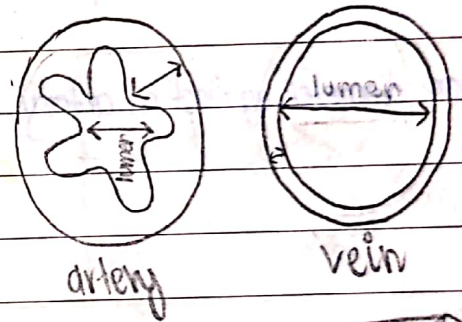 lumen
lumen
artery
vein